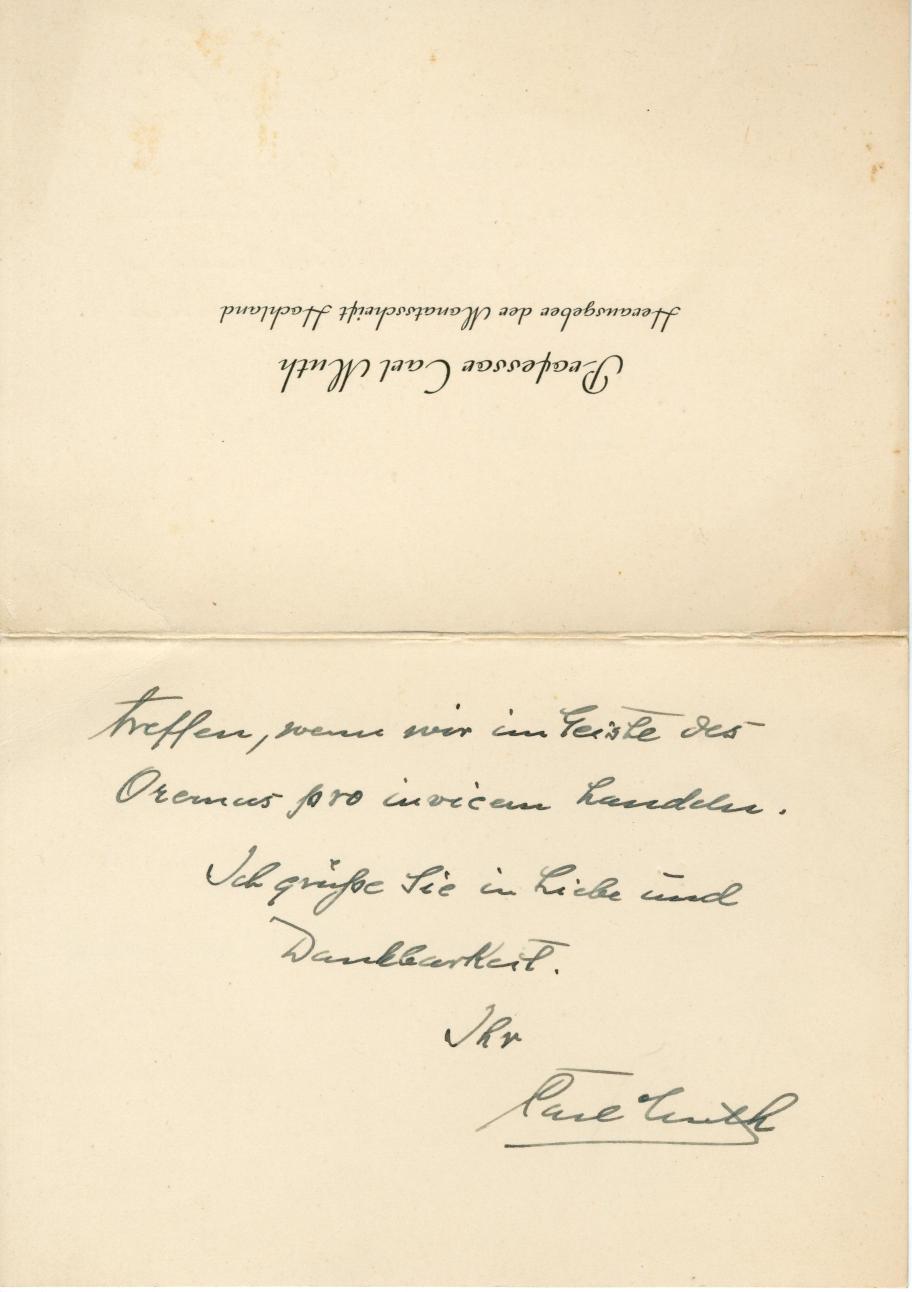 Professor Carl Muth
Herausgeber der Monatsschrift Hochland
treffen, wenn wir im Geiste des
Oremus pro invicem handeln.
Ich grüße Sie in Liebe und
Dankbarkeit.
Ihr
Carl Muth